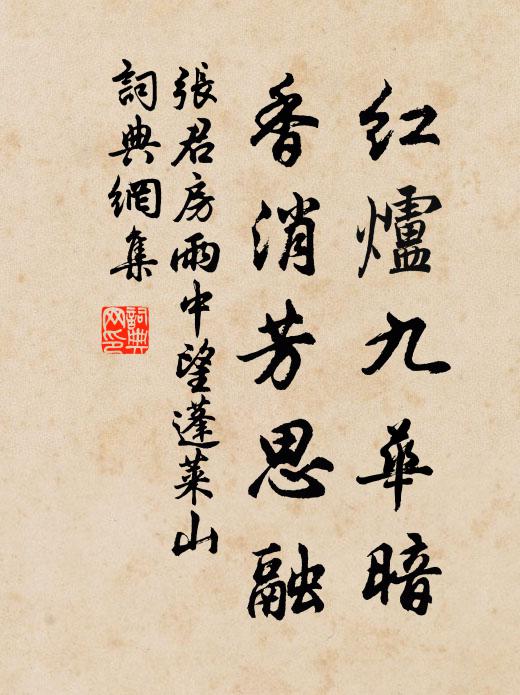 紅爐九華暗
香消芳思融
張君房雨中望蓬萊山
詞典網集
詞典网印